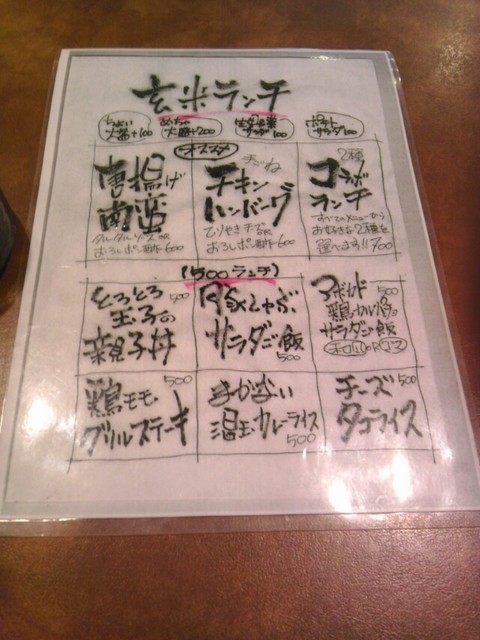 玄米ランチ
ちょい
大盛+100
めっちゃ
大盛+200
生野菜
サラダ100
ポテト
サラダ100
オススメ
唐揚げ
南蛮
タルタルソースOR
おろしポン酢 600
チーね
チキン
ハンバーグ
てりやきチーズOR
おろしポン酢 600
2種
コラボ
ランチ
すべてのメニューから
お好きな2種を
選べます!! 700
(500ランチ)
とろとろ 500
玉子の
親子丼
豚しゃぶ
サラダご飯
500
アボカド 500
鶏カルパッチョ
サラダご飯
鶏モモ 500
グリルステーキ
まかない
温玉カレーライス
500
チーズ 500
タコライス